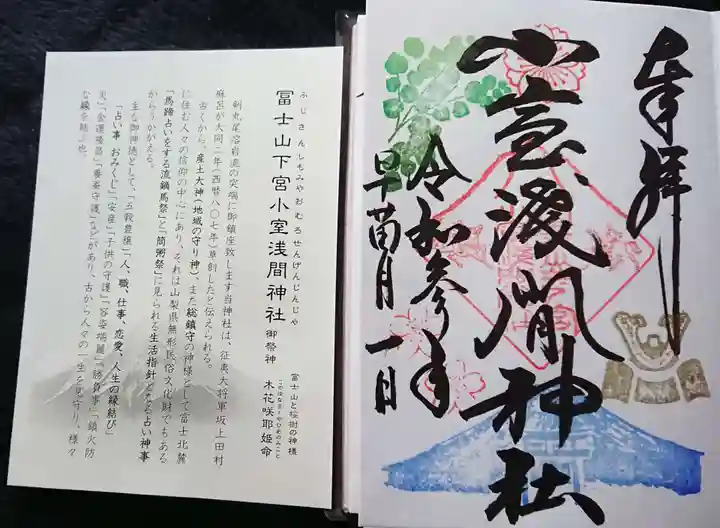 奉拝
小室浅間神社
令和参年
早苗月一日
ふじさんしもみやおむろせんげんじんじゃ
冨士山下宮小室浅間神社
御祭神
富士山と桜樹の神様
木花咲耶姫命
このはなさくやひめのみこと
剣丸尾溶岩流の突端に御鎮座致します当神社は、征夷大将軍坂上田村
麻呂が大同二年(西暦八〇七年)草創したと伝えられる。
古くから、産土大神(地域の守り神)、また総鎮守の神様として富士北麓
に住む人々の信仰の中心にあり、それは山梨県無形民俗文化財でもある
「馬蹄占いをする流鏑馬祭」と「筒粥祭」に見られる生活指針となる占い神事
からうかがえる。
主な御神徳として、「五穀豊穣」「人、職、仕事、恋愛、人生の縁結び」
「占い事 おみくじ」「安産」「子供の守護」「容姿端麗」「勝負事」「鎮火防
災」「金運隆昌」「養蚕守護」などがあり、古から人々の一生を見守り、様々
な縁を結ぶ也。